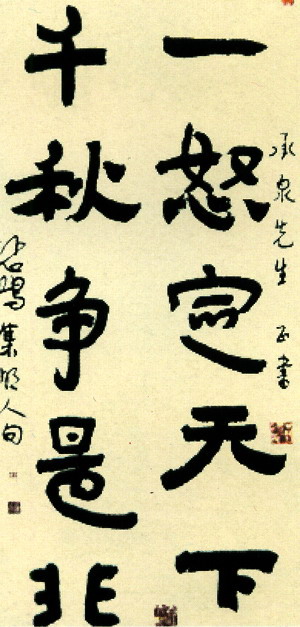 承泉先生 正書
一怒定天下
千秋争是非
集明人句